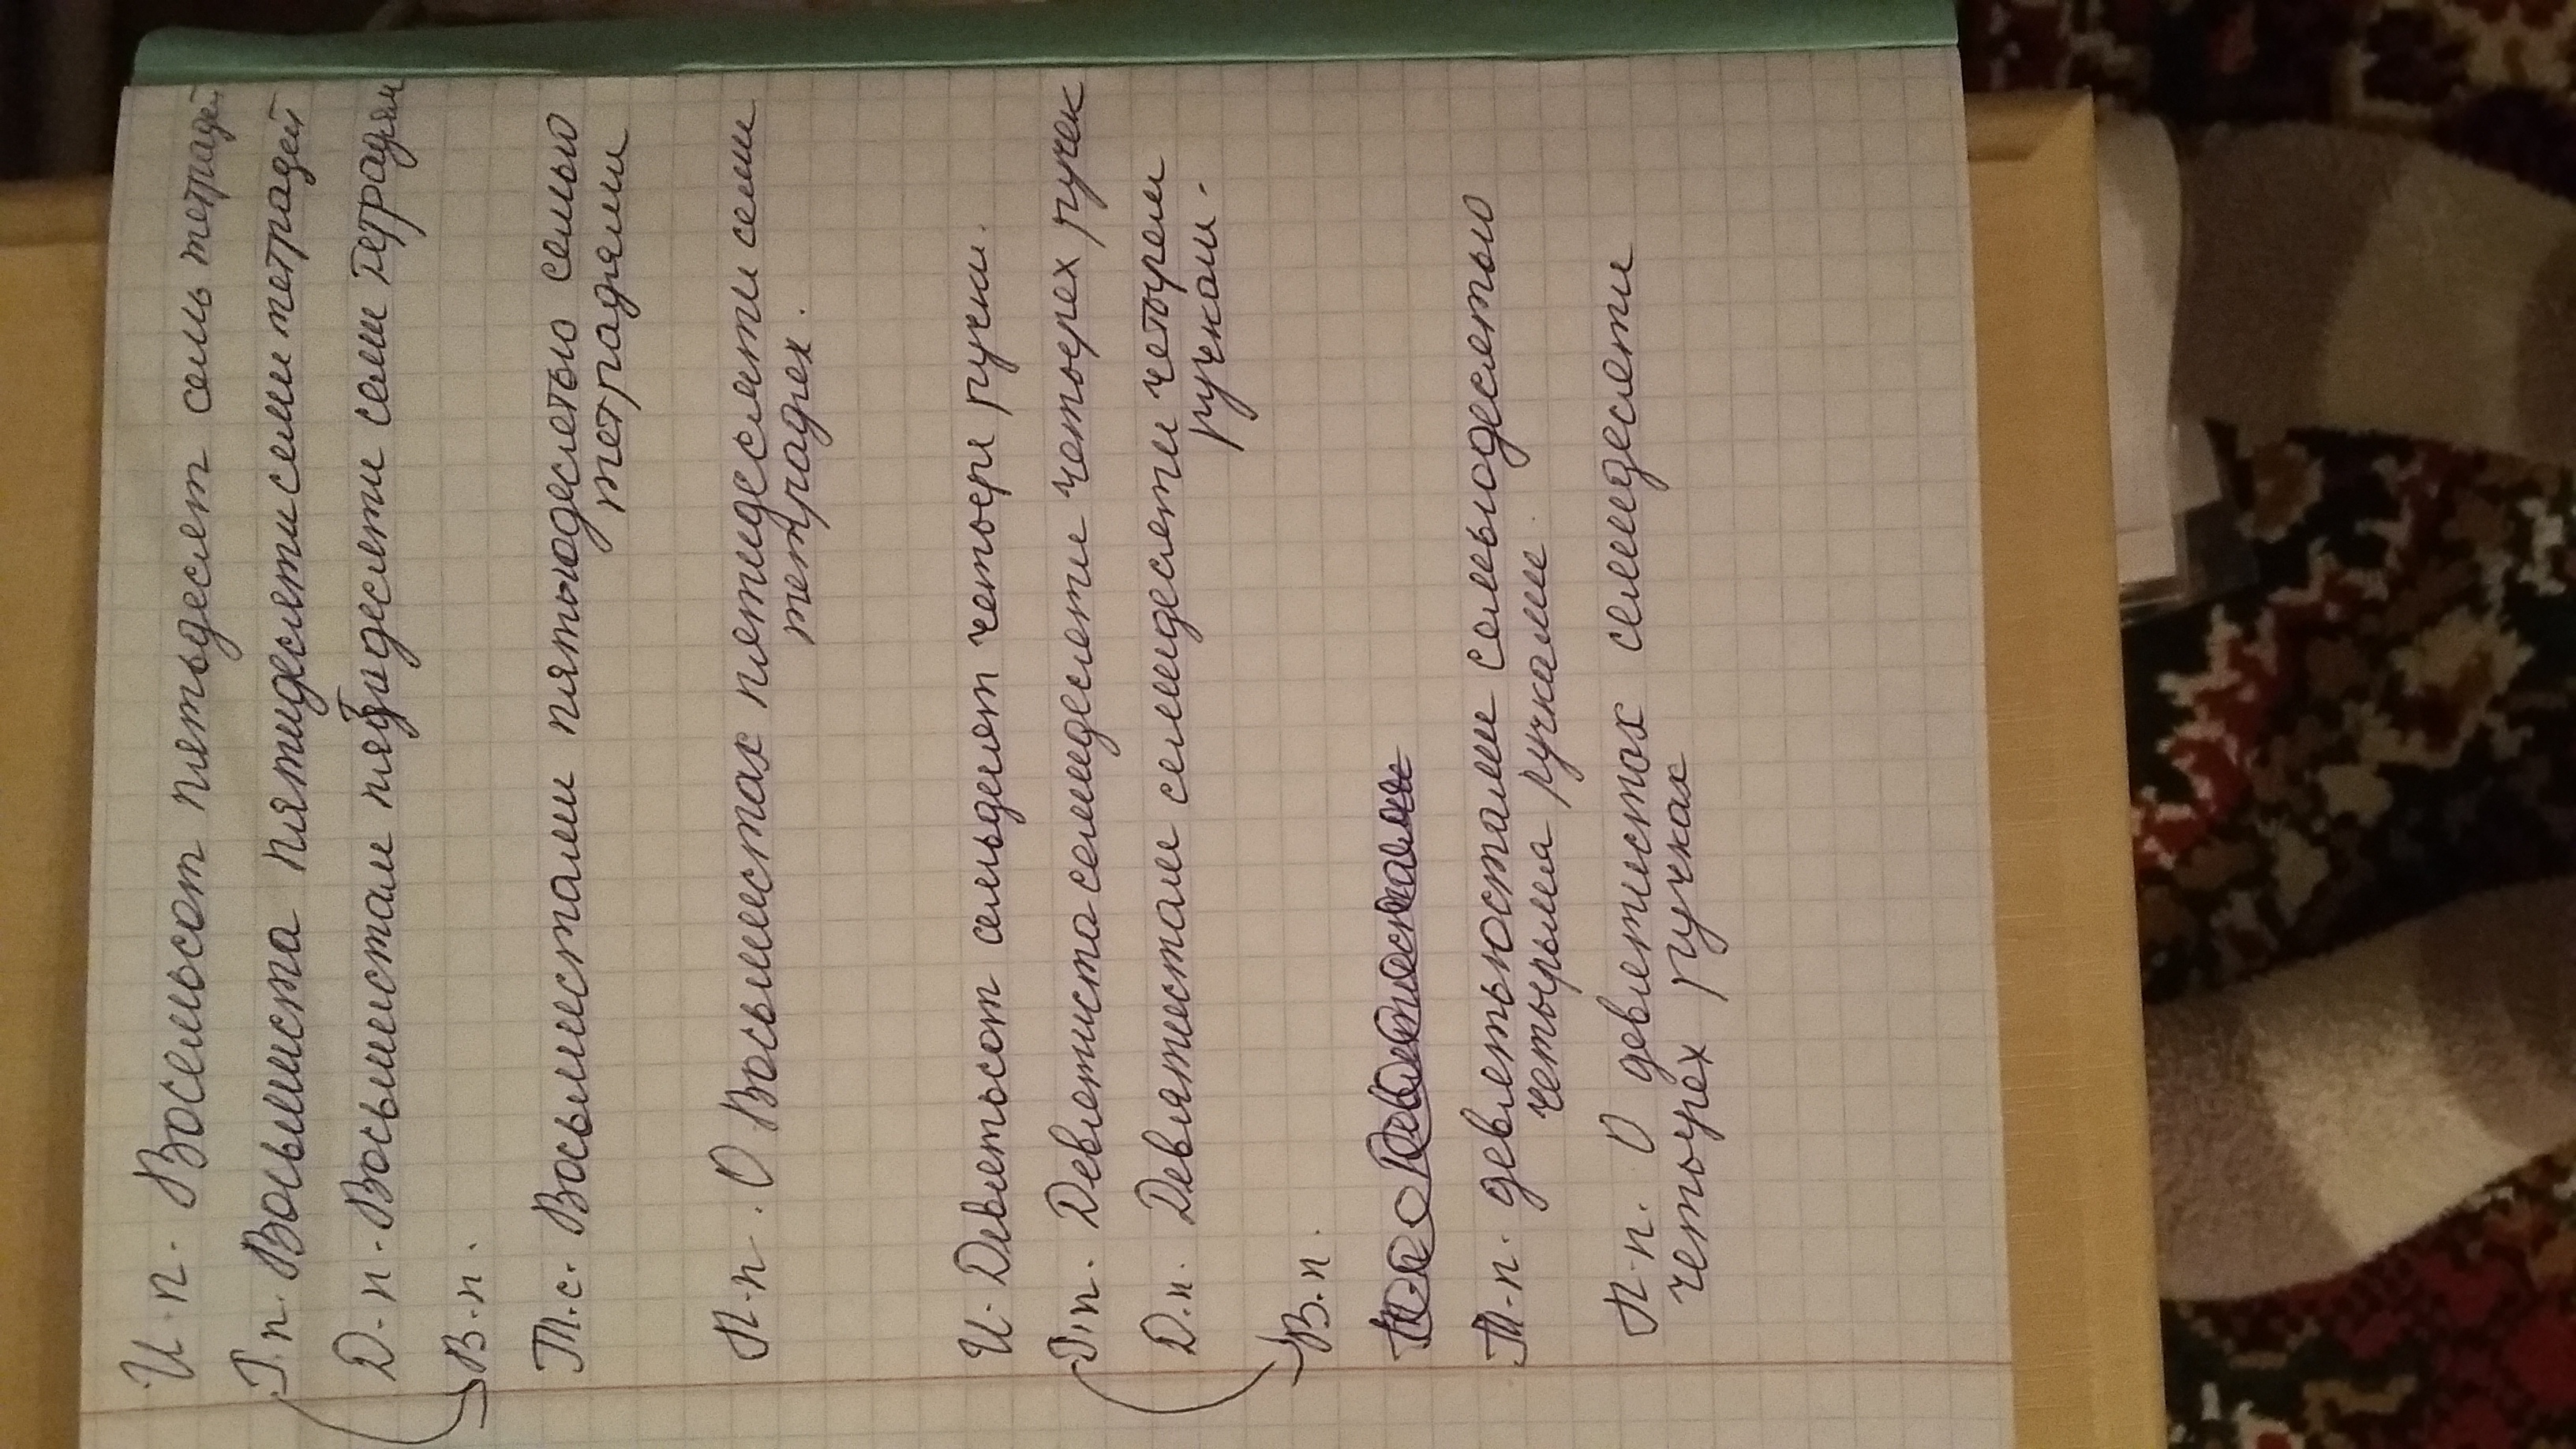 И.п. Восемьсот пятьдесят семь тетрадей
Г.п. Восьмиста пятидесяти семи тетрадей
Д.п. Восьмистам пятдадесяти семи тетрадям
В.п.
Т.с. Восьмистами пятьюдесетью семью
тетрадями
П.п. О Восьмистах пятидесяти семи
тетрадях.
И. Девятьсот семьдесят четыре ручки.
Г.п. Девятиста семидесяти четырех ручек
Д.п. Девятистам семидесяти четырем
ручкам.
В.п.
Т.п. девятьюстами семьюдесятью
четырьма ручками.
П.п. О девятистах семидесяти
четырёх ручках